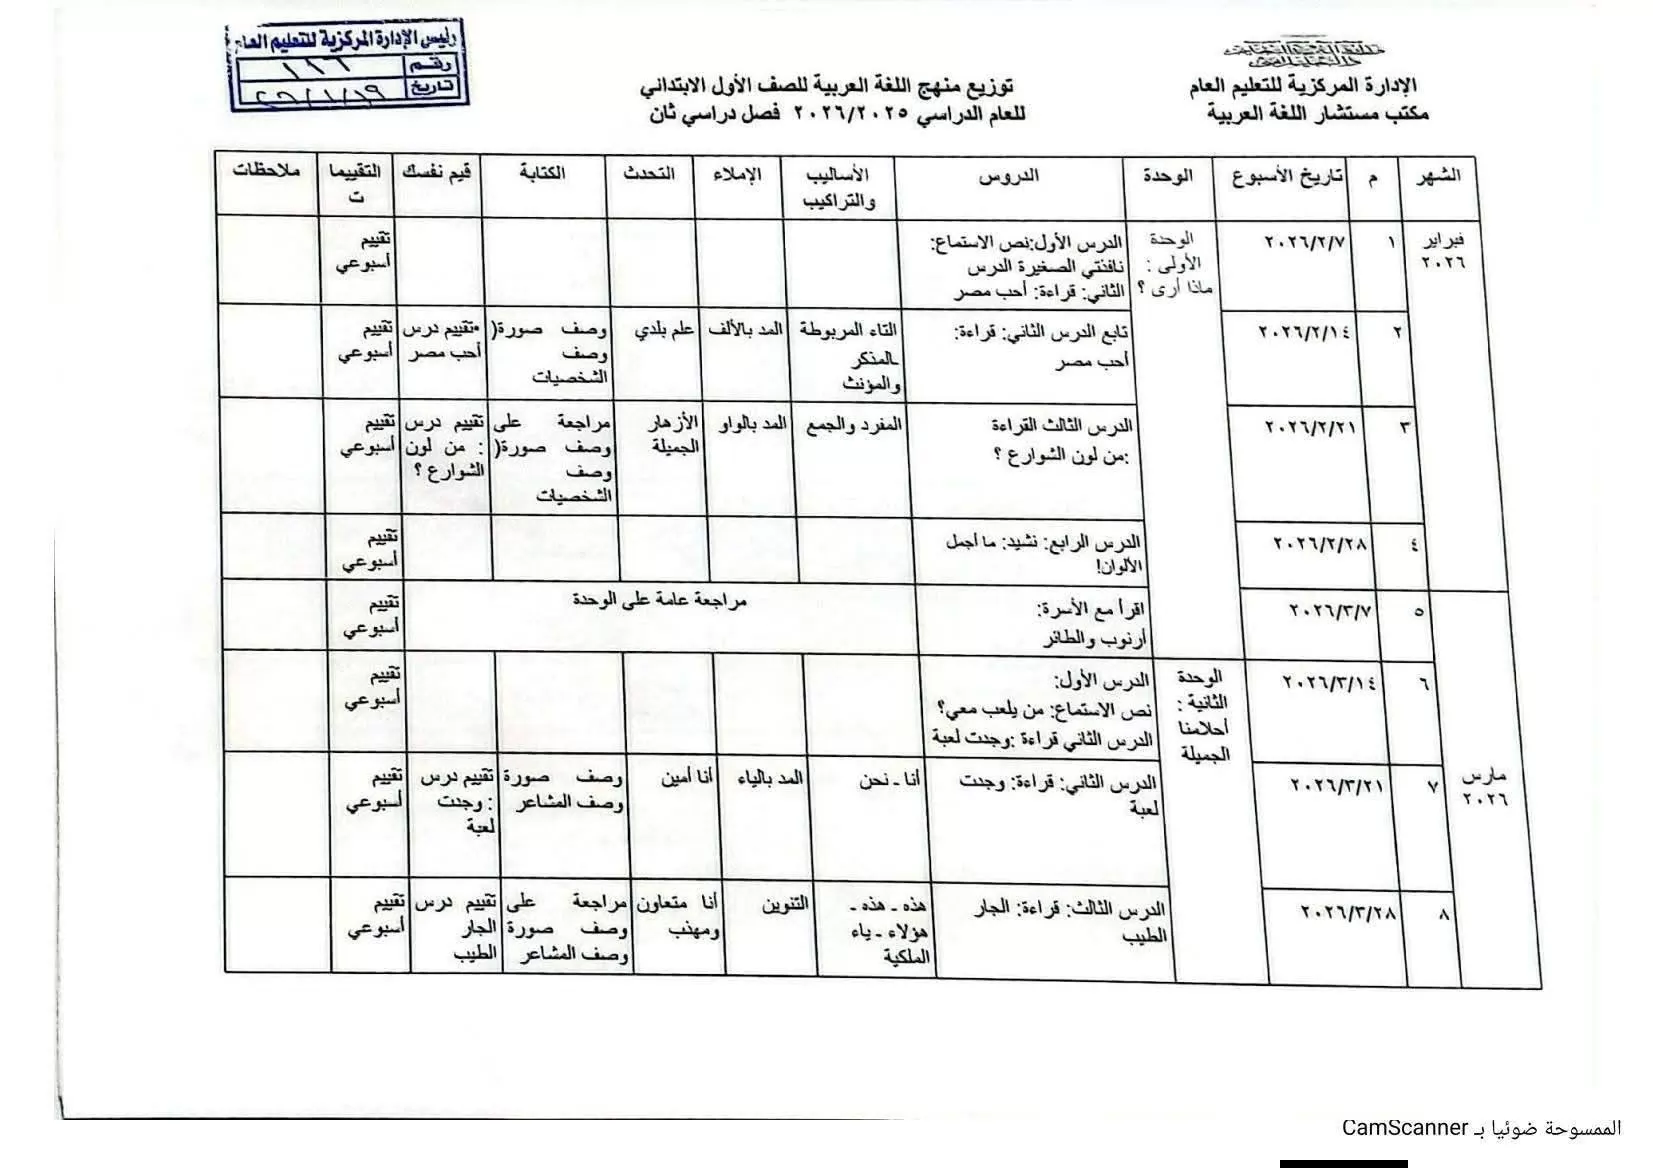 رئيس الإدارة المركزية للتعليم العام
رقم ١٦٦
تاريخ
الإدارة المركزية للتعليم العام
مكتب مستشار اللغة العربية
توزيع منهج اللغة العربية للصف الأول الابتدائي
للعام الدراسي ٢٠٢٦/٢٠٢٥ فصل دراسي ثان
الشهر م تاريخ الأسبوع الوحدة الدروس الأساليب والتراكيب الإملاء التحدث الكتابة قيم نفسك التقييمات ملاحظات
فبراير
٢٠٢٦
١
٢٠٢٦/٢/٧
الوحدة
الأولى :
ماذا أرى ؟
الدرس الأول:نص الاستماع:
نافذتي الصغيرة الدرس
الثاني: قراءة: أحب مصر
تقييم
أسبوعي
٢
٢٠٢٦/٢/١٤
تابع الدرس الثاني: قراءة:
أحب مصر
التاء المربوطة
ـالمذكر
والمؤنث
المد بالألف
علم بلدي
وصف صورة(
وصف
الشخصيات
•تقييم درس
أحب مصر
تقييم
أسبوعي
٣
٢٠٢٦/٢/٢١
الدرس الثالث القراءة
:من لون الشوارع ؟
المفرد والجمع
المد بالواو
الأزهار
الجميلة
مراجعة على
وصف صورة(
وصف
الشخصيات
تقييم درس
: من لون
الشوارع ؟
تقييم
أسبوعي
٤
٢٠٢٦/٢/٢٨
الدرس الرابع: نشيد: ما أجمل
الألوان!
تقييم
أسبوعي
مارس
٢٠٢٦
٥
٢٠٢٦/٣/٧
اقرأ مع الأسرة:
أرنوب والطائر
مراجعة عامة على الوحدة
تقييم
أسبوعي
٦
٢٠٢٦/٣/١٤
الوحدة
الثانية :
أحلامنا
الجميلة
الدرس الأول:
نص الاستماع: من يلعب معي؟
الدرس الثاني قراءة :وجدت لعبة
تقييم
أسبوعي
٧
٢٠٢٦/٣/٢١
الدرس الثاني: قراءة: وجدت
لعبة
أنا ـ نحن
المد بالياء
أنا أمين
وصف صورة
وصف المشاعر
تقييم درس
: وجدت
لعبة
تقييم
أسبوعي
٨
٢٠٢٦/٣/٢٨
الدرس الثالث: قراءة: الجار
الطيب
هذه ـ هذه ـ
هؤلاء ـ ياء
الملكية
التنوين
أنا متعاون
ومهذب
مراجعة على
وصف صورة
وصف المشاعر
تقييم درس
الجار
الطيب
تقييم
أسبوعي
الممسوحة ضوئيا بـ CamScanner